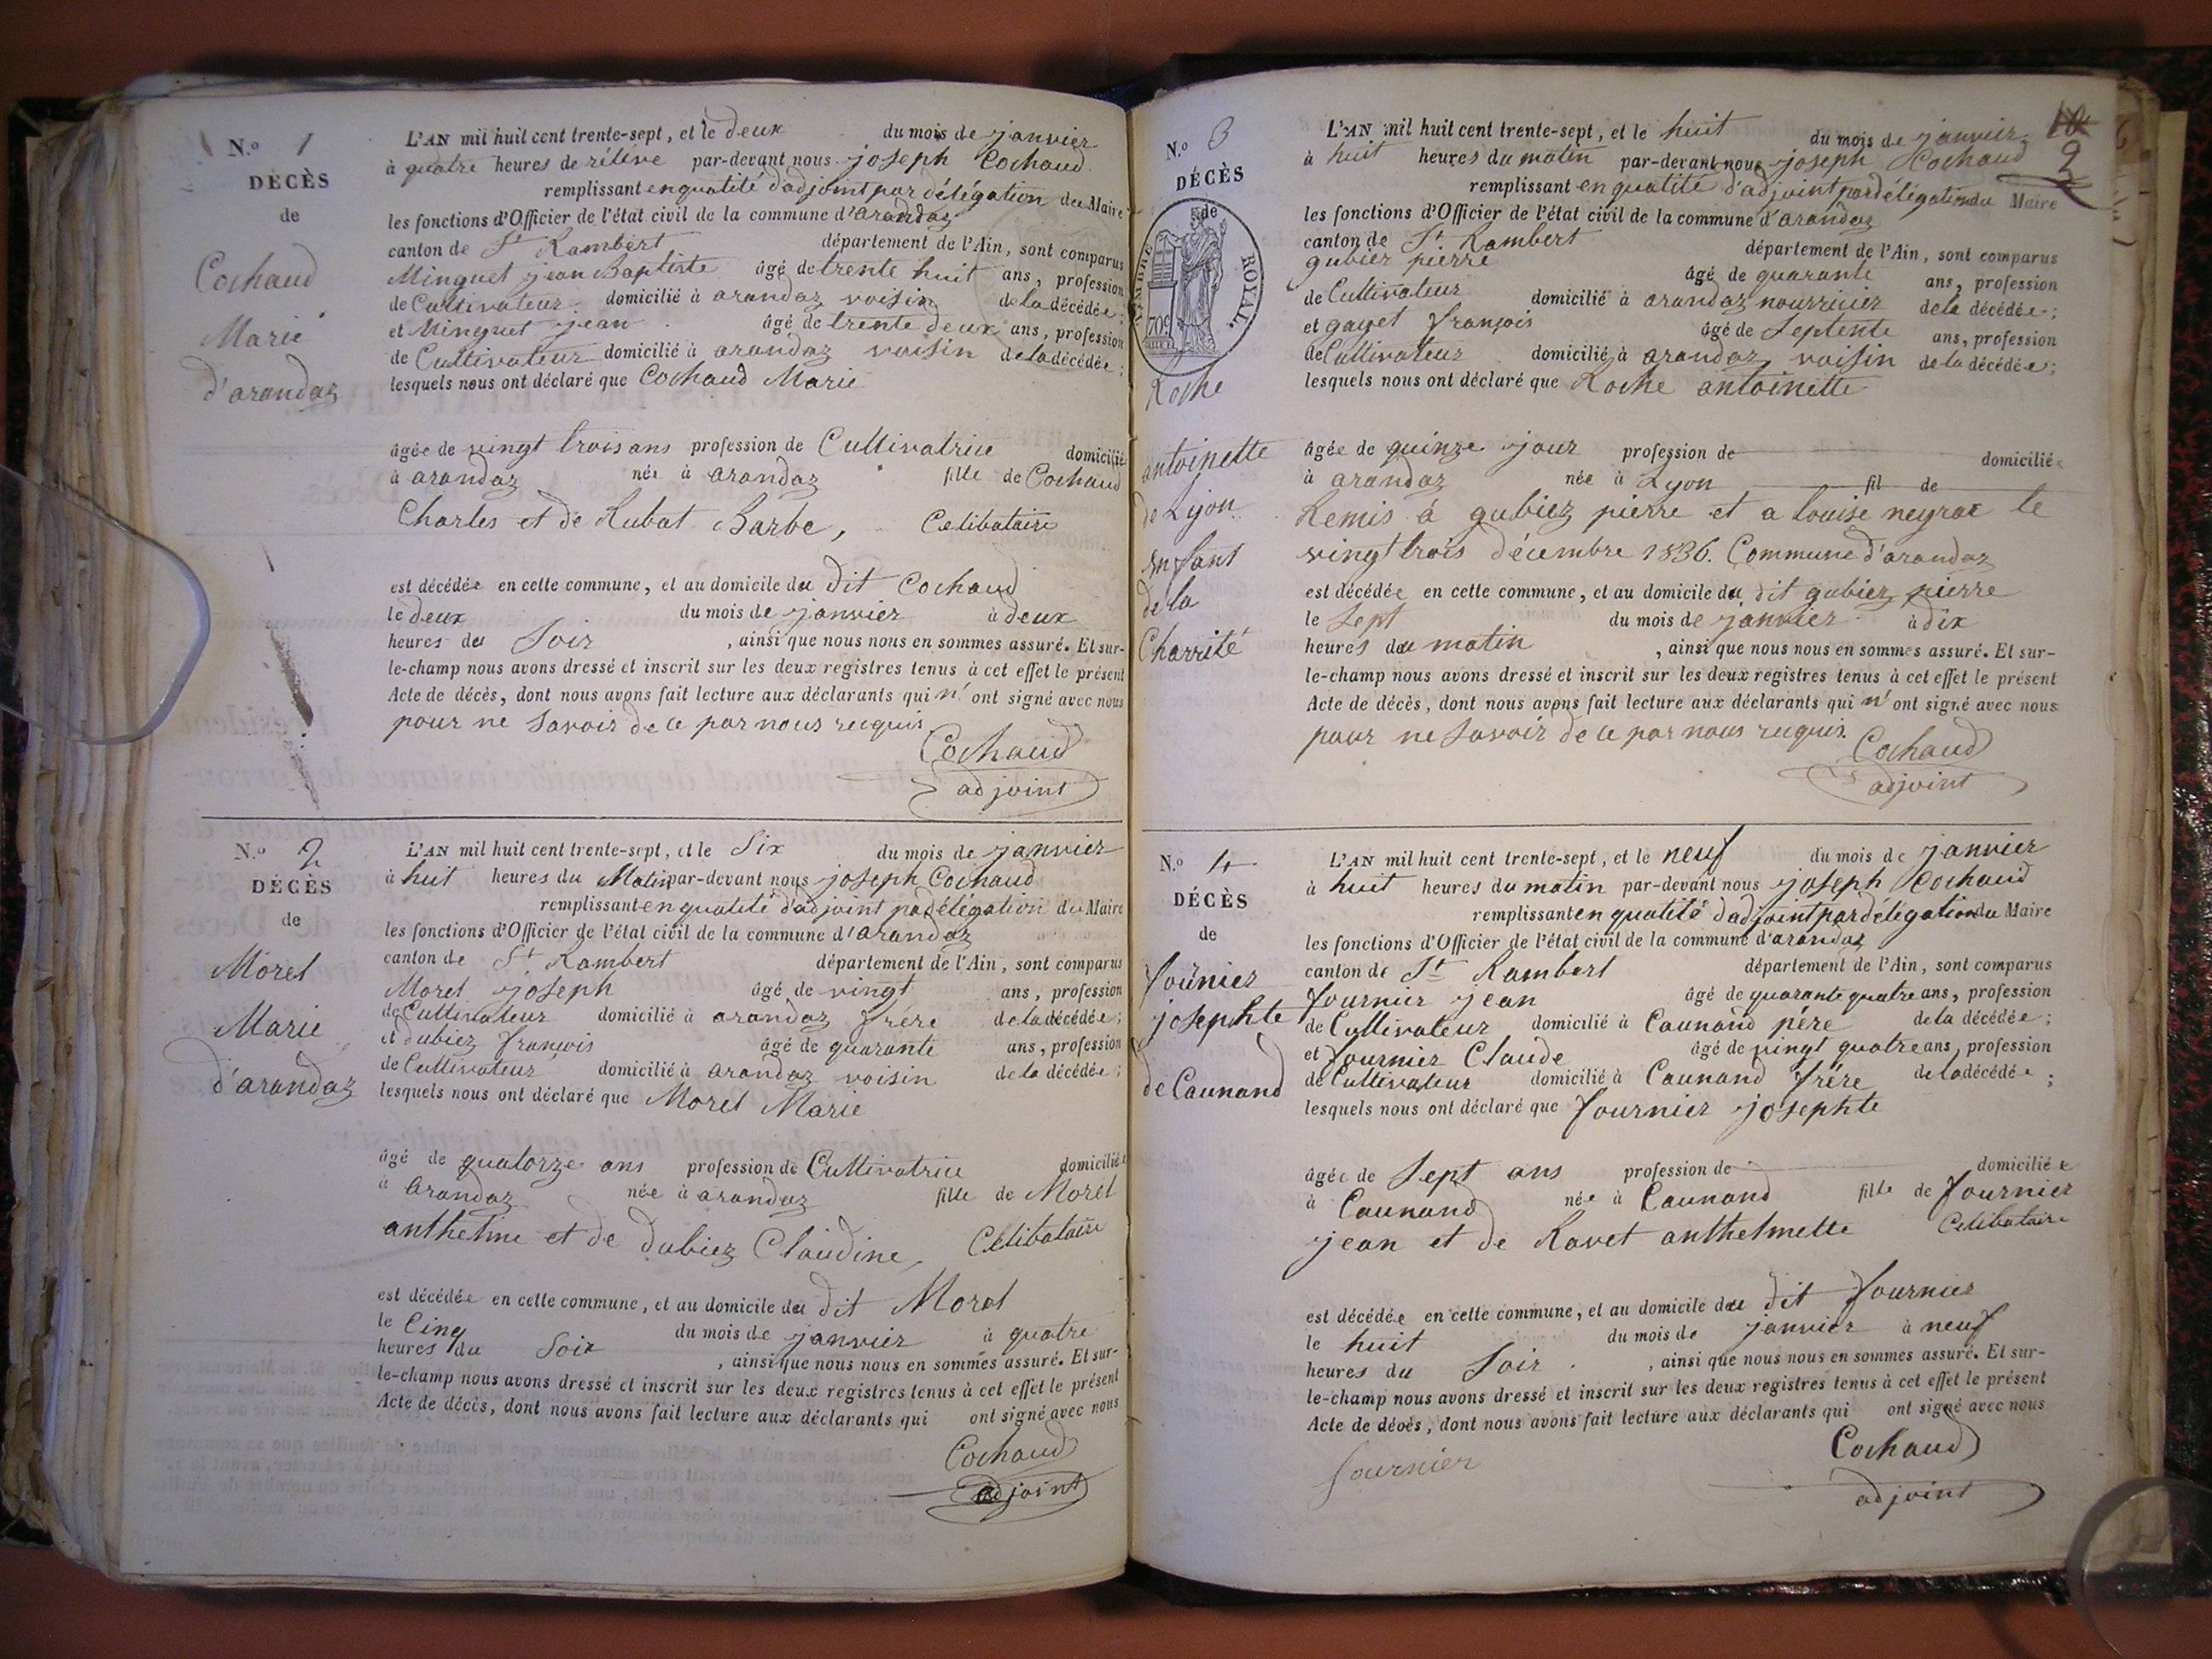 N.o 1
DÉCÈS
de
Cochaud
Marie
d'arandaz
L'AN mil huit cent trente-sept, et le deux du mois de janvier
à quatre heures de rélévé par-devant nous joseph Cochaud
remplissant en quatité d'adjoint par délégation du Maire
les fonctions d'Officier de l'état civil de la commune d'arandaz
canton de St Rambert département de l'Ain, sont comparus
Minguet jean Baptiste âgé de trente huit ans, profession
de Cultivateur domicilié à arandaz voisin de la décédée;
et Minguet jean âgé de trente deux ans, profession
de Cultivateur domicilié à arandaz voisin de la décédée;
lesquels nous ont déclaré que Cochaud Marie
âgée de vingt trois ans profession de Cultivatrice domicilié
à arandaz née à arandaz fille de Cochaud
Charles et de Rubat Barbe, Celibataire
est décédée en cette commune, et au domicile du dit Cochaud
le deux du mois de janvier à deux
heures du Soir, ainsi que nous nous en sommes assuré. Et sur-
le-champ nous avons dressé et inscrit sur les deux registres tenus à cet effet le présent
Acte de décès, dont nous avons fait lecture aux déclarants qui n'ont signé avec nous
pour ne Savoir de ce par nous requis
Cochaud
adjoint
N.o 2
DÉCÈS
de
Morel
Marie
d'arandaz
L'AN mil huit cent trente-sept, et le Six du mois de janvier
à huit heures du Matin par-devant nous joseph Cochaud
remplissant en quatité d'adjoint par délégation du Maire
les fonctions d'Officier de l'état civil de la commune d'arandaz
canton de St Rambert département de l'Ain, sont comparus
Morel joseph âgé de vingt ans, profession
de Cultivateur domicilié à arandaz frére de la décédée;
et dubiez francois âgé de quarante ans, profession
de Cultivateur domicilié à arandaz voisin de la décédée;
lesquels nous ont déclaré que Morel Marie
âgé de quatorze ans profession de Cultivatrice domiciliée
à arandaz née à arandaz fille de Morel
anthelme et de dubiez Claudine, Célibataire
est décédée en cette commune, et au domicile du dit Morel
le Cinq du mois de janvier à quatre
heures du Soir, ainsi que nous nous en sommes assuré. Et sur-
le-champ nous avons dressé et inscrit sur les deux registres tenus à cet effet le présent
Acte de décès, dont nous avons fait lecture aux déclarants qui ont signé avec nous
Cochaud
adjoint
2
N.o 3
DÉCÈS
de
TIMBRE ROYAL.
70c
Roche
antoinette
de Lyon
enfant
de la
Charrité
L'AN mil huit cent trente-sept, et le huit du mois de janvier
à huit heures du matin par-devant nous joseph Cochaud
remplissant en quatité d'adjoint par délégation du Maire
les fonctions d'Officier de l'état civil de la commune d'arandaz
canton de St Rambert département de l'Ain, sont comparus
gubiez pierre âgé de quarante ans, profession
de Cultivateur domicilié à arandaz nourricier de la décédée;
et gayet françois âgé de Septente ans, profession
de Cultivateur domicilié à arandaz voisin de la décédée;
lesquels nous ont déclaré que Roche antoinette
âgée de quinze jour profession de domiciliée
à arandaz née à Lyon fil de
Remis à gubiez pierre et a louise neyrac le
vingt trois décembre 1836. Commune d'arandaz
est décédée en cette commune, et au domicile du dit gubiez pierre
le Sept du mois de janvier à dix
heures du matin, ainsi que nous nous en sommes assuré. Et sur-
le-champ nous avons dressé et inscrit sur les deux registres tenus à cet effet le présent
Acte de décès, dont nous avons fait lecture aux déclarants qui n'ont signé avec nous
pour ne Savoir de ce par nous requis.
Cochaud
adjoint
N.o 4
DÉCÈS
de
fournier
josephte
de Caunand
L'AN mil huit cent trente-sept, et le neuf du mois de janvier
à huit heures du matin par-devant nous joseph Cochaud
remplissant en quatité d'adjoint par délégation du Maire
les fonctions d'Officier de l'état civil de la commune d'arandaz
canton de St Rambert département de l'Ain, sont comparus
fournier jean âgé de quarante quatre ans, profession
de Cultivateur domicilié à Caunand pére de la décédée;
et fournier Claude âgé de vingt quatre ans, profession
de Cultivateur domicilié à Caunand frére de la décédée;
lesquels nous ont déclaré que fournier josephte
âgée de Sept ans profession de domiciliée
à Caunand née à Caunand fille de fournier
jean et de Ravet anthelmette Célibataire
est décédée en cette commune, et au domicile du dit fournier
le huit du mois de janvier à neuf
heures du Soir, ainsi que nous nous en sommes assuré. Et sur-
le-champ nous avons dressé et inscrit sur les deux registres tenus à cet effet le présent
Acte de décès, dont nous avons fait lecture aux déclarants qui ont signé avec nous
fournier
Cochaud
adjoint